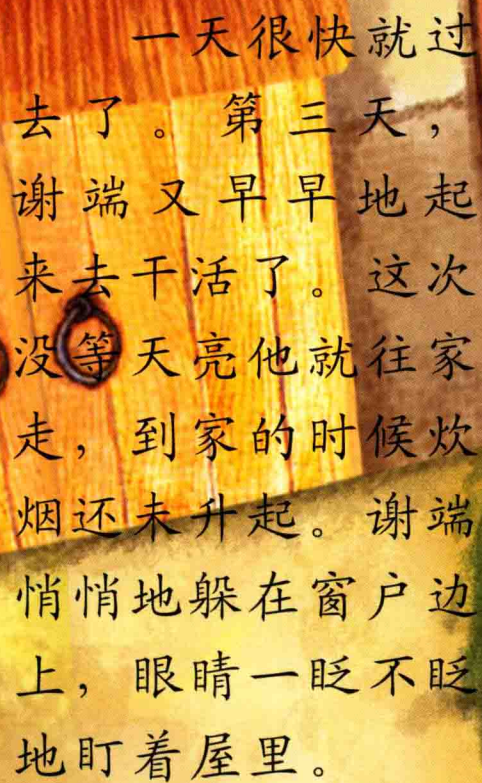 一天很快就过
去了。第三天，
谢端又早早地起
来去干活了。这次
没等天亮他就往家
走，到家的时候炊
烟还未升起。谢端
悄悄地躲在窗户边
上，眼睛一眨不眨
地盯着屋里。